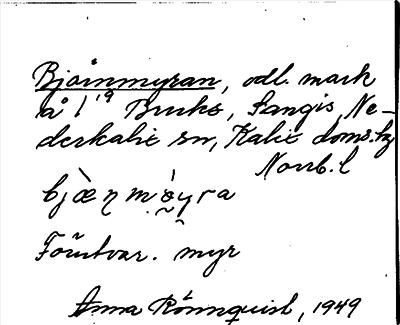 Björnmyran, odl. mark
å 1¹⁹ Bruks, Sangis, Ne-
derkalix sn, Kalix doms.hg
Norrb. l
Förutvar. myr
Anna Rönnquist, 1949